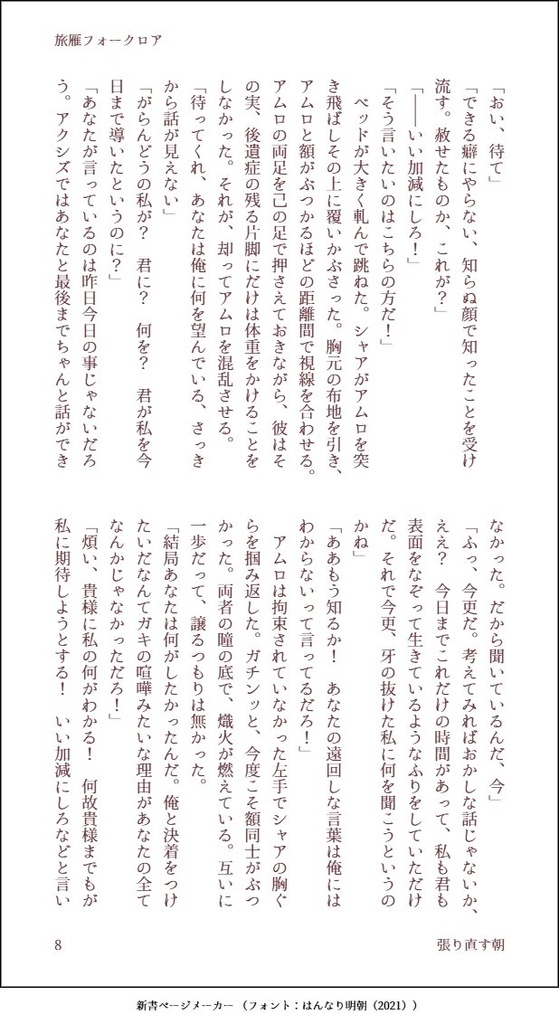 旅雁フォークロア
「おい、待て」
「できる癖にやらない、知らぬ顔で知ったことを受け
流す。赦せたものか、これが？」
「――いい加減にしろ！」
「そう言いたいのはこちらの方だ！」
　ベッドが大きく軋んで跳ねた。シャアがアムロを突
き飛ばしその上に覆いかぶさった。胸元の布地を引き、
アムロと額がぶつかるほどの距離間で視線を合わせる。
アムロの両足を己の足で押さえておきながら、彼はそ
の実、後遺症の残る片脚にだけは体重をかけることを
しなかった。それが、却ってアムロを混乱させる。
「待ってくれ、あなたは俺に何を望んでいる、さっき
から話が見えない」
「がらんどうの私が？　君に？　何を？　君が私を今
日まで導いたというのに？」
「あなたが言っているのは昨日今日の事じゃないだろ
う。アクシズではあなたと最後までちゃんと話ができ
なかった。だから聞いているんだ、今」
「ふっ、今更だ。考えてみればおかしな話じゃないか、
ええ？　今日までこれだけの時間があって、私も君も
表面をなぞって生きているようなふりをしていただけ
だ。それで今更、牙の抜けた私に何を聞こうというの
かね」
「ああもう知るか！　あなたの遠回しな言葉は俺には
わからないって言ってるだろ！」
　アムロは拘束されていなかった左手でシャアの胸ぐ
らを掴み返した。ガチンッと、今度こそ額同士がぶつ
かった。両者の瞳の底で、熾火が燃えている。互いに
一歩だって、譲るつもりは無かった。
「結局あなたは何がしたかったんだ。俺と決着をつけ
たいだなんてガキの喧嘩みたいな理由があなたの全て
なんかじゃなかっただろ！」
「煩い、貴様に私の何がわかる！　何故貴様までもが
私に期待しようとする！　いい加減にしろなどと言い
8
張り直す朝
新書ページメーカー（フォント：はんなり明朝（2021））